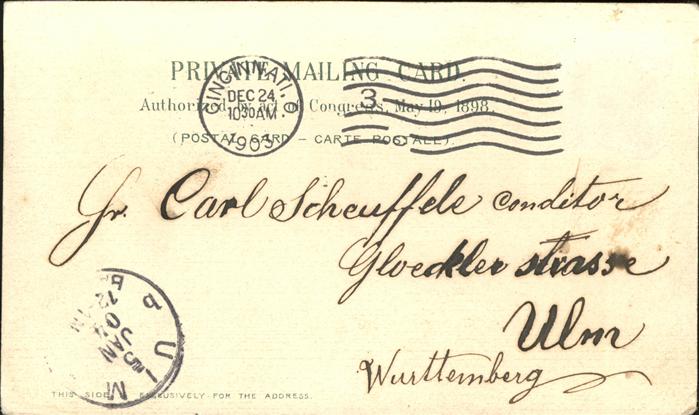 PRIVATE MAILING CARD.
Authorized by act of Congress, May 19, 1898.
(POSTAL CARD – CARTE POSTALE).
CINCINNATI, O.
DEC 24
10 30 AM
1903
3
Hr. Carl Scheuffele conditor
Gloeckler strasse
Ulm
Wurttemberg
ULM
5 JAN 04
THIS SIDE EXCLUSIVELY FOR THE ADDRESS.